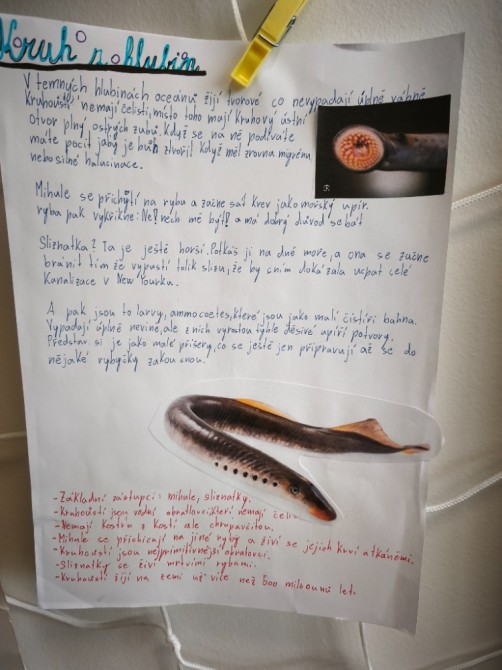 Kruh z hlubin
V temných hlubinách oceánu žijí tvorové co nevypadají úplně vábně
Kruhoústí nemají čelisti, místo toho mají kruhový ústní
otvor plný ostrých zubů. Když se na ně podíváte
máte pocit jaby je bůh stvořil když měl zrovna migrénu
nebo silné halucinace.
Mihule se přichytí na rybu a začne sát krev jako mořský upír.
ryba pak vykřikne: Ne! nech mě být! a má dobrý důvod se bát
Sliznatka? Ta je ještě horší. Potkáš ji na dně moře, a ona se začne
bránit tím že vypustí tolik slizu, že by s ním dokázala ucpat celé
Kanalizace v New Yourku.
A pak jsou to larvy, ammocoetes, které jsou jako malí čističi bahna.
Vypadají úplně nevině, ale z nich vyrostou tyhle děsivé upíří potvory.
Představ si je jako malé příšery, co se ještě jen připravují až se do
nějaké rybyčky zakousnou.
-Základní zástupci: mihule, sliznatky.
-Kruhoústí jsou vodní obratlovci, kteří nemají čelis
-Nemají kostru z kostí ale chrupavčitou.
-Mihule se přichicají na jiné ryby a živí se jejich krví a tkáněmi.
-Kruhoústí jsou nejprimitivnější obratlovci.
-Sliznatky se živí mrtvími rybami.
-Kruhoústí žijí na zemi už více než 500 milounů let.